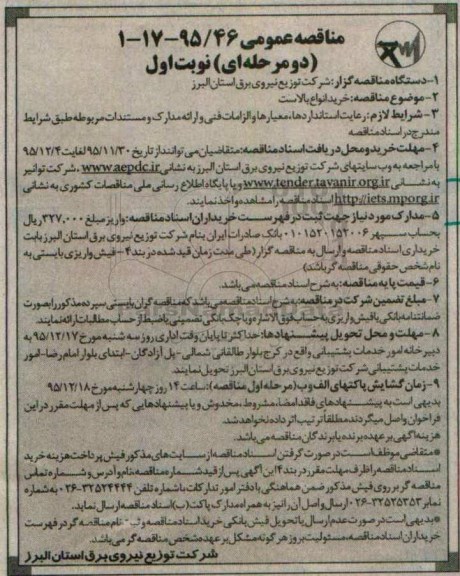 مناقصه عمومی ۹۵/۴۶-۱۷-۱
(دو مرحله ای) نوبت اول
۱-دستگاه مناقصه گزار: شرکت توزیع نیروی برق استان البرز
۲-موضوع مناقصه: خرید انواع بالاست
۳- شرایط لازم: رعایت استانداردها، معیارها و الزامات فنی و ارائه مدارک و مستندات مربوطه طبق شرایط
مندرج در اسناد مناقصه
۴-مهلت خرید و محل دریافت اسناد مناقصه: متقاضیان می توانند از تاریخ ۹۵/۱۱/۳۰ لغایت ۹۵/۱۲/۴
با مراجعه به وب سایتهای شرکت توزیع نیروی برق استان البرز به نشانی www.aepdc.ir ، شرکت توانیر
به نشانی www.tender.tavanir.org.ir و یا پایگاه اطلاع رسانی ملی مناقصات کشوری به نشانی
http://iets.mporg.ir اسناد مناقصه را مشاهده و اخذ نمایند.
۵-مدارک مورد نیاز جهت ثبت در فهرست خریداران اسناد مناقصه: واریز مبلغ ۳۲۷،۰۰۰ ریال
بحساب سپهر ۰۱۰۱۵۲۰۱۵۲۰۰۶ بانک صادرات ایران بنام شرکت توزیع نیروی برق استان البرز بابت
خریداری اسناد مناقصه و ارسال به مناقصه گزار (طی مدت زمان قید شده در بند ۴- فیش واریزی بایستی به
نام شخص حقوقی مناقصه گر باشد)
۶-قیمت پایه مناقصه: به شرح اسناد مناقصه می باشد.
۷- مبلغ تضمین شرکت در مناقصه: به شرح اسناد مناقصه می باشد که مناقصه گران بایستی سپرده مذکور را بصورت
ضمانتنامه بانکی یا فیش واریزی به حساب فوق الاشاره و یا چک بانکی تضمینی یا ضبط از حساب مطالبات ارائه نمایند.
۸- مهلت و محل تحویل پیشنهادها: حداکثر تا پایان وقت اداری روز سه شنبه مورخ ۹۵/۱۲/۱۷ به
دبیرخانه امور خدمات پشتیبانی واقع در کرج بلوار طالقانی شمالی -پل آزادگان -ابتدای بلوار امام رضا-امور
خدمات پشتیبانی شرکت توزیع نیروی برق استان البرز تحویل نمایند.
۹-زمان گشایش پاکتهای الف و ب (مرحله اول مناقصه): ساعت ۱۴ روز چهارشنبه مورخ ۹۵/۱۲/۱۸
بدیهی است به پیشنهادهای فاقد امضا، مشروط، مخدوش و یا پیشنهادهایی که پس از مهلت مقرر در این
فراخوان واصل میگردند مطلقاً ترتیب اثر داده نخواهد شد.
هزینه آگهی بر عهده برنده یا برندگان مناقصه می باشد.
*متقاضی موظف است در صورت گرفتن اسناد مناقصه از سایت های مذکور فیش پرداخت هزینه خرید
اسناد مناقصه را ظرف مهلت مقرر در بند ۴ این آگهی پس از قید شماره مناقصه، نام و آدرس و شماره تماس
مناقصه گر بر روی فیش مذکور ضمن هماهنگی با دفتر امور تدارکات با شماره تلفن ۳۲۵۲۴۴۴۴-۰۲۶ به شماره
نمابر ۳۲۵۲۵۳۵۳-۰۲۶ ارسال و اصل آن را نیز به همراه مدارک پاکت (ب) اسناد مناقصه ارسال نماید.
*بدیهی است در صورت عدم ارسال یا تحویل فیش بانکی خرید اسناد مناقصه و ثبت نام مناقصه گر در فهرست
خریداران اسناد مناقصه، مسئولیت بروز هر گونه مشکل بر عهده شخص مناقصه گر می باشد.
شرکت توزیع نیروی برق استان البرز